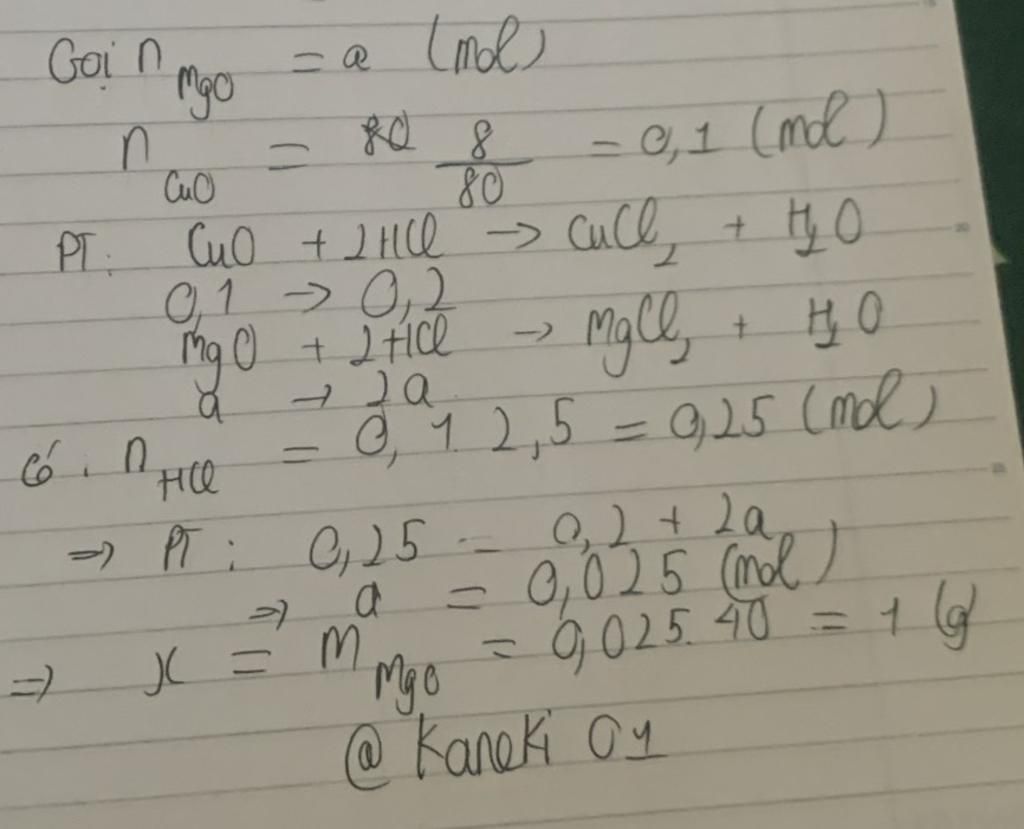 Gọi n MgO = a (mol)
n CuO = 80 8/80 = 0,1 (mol)
PT: CuO + 2HCl → CuCl2 + H2O
0,1 → 0,2
MgO + 2HCl → MgCl2 + H2O
a → 2a
Có: n HCl = 0,1.2,5 = 0,25 (mol)
⇒ PT: 0,25 = 0,2 + 2a
⇒ a = 0,025 (mol)
⇒ x = m MgO = 0,025.40 = 1 (g)
@ Kaneki 01